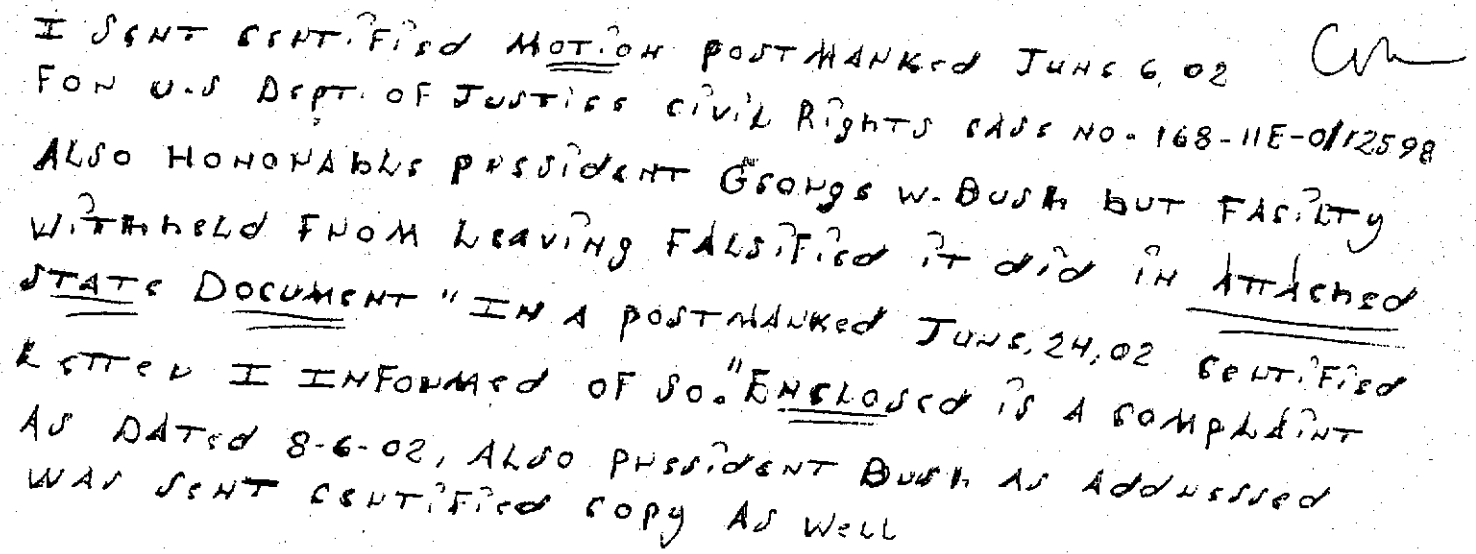 I SENT CERTiFiEd MOTiON POSTMARKEd JUNE 6, 02
FOR U.S DEPT. OF JUSTiCE CiViL RighTS CASE NO- 168-11E-0/12598
ALSO HONORAbLE PRESidENT GEORgE W. BUSh bUT FACiLTy
WiThhELd FROM LEAViNg FALSiFiEd iT did iN ATTAChEd
STATE DOCUMENT "IN A POSTMARKEd JUNE, 24, 02 CERTiFiEd
LETTER I INFORMEd OF SO." ENCLOSEd iS A COMPLAiNT
AS DATEd 8-6-02, ALSO PRESidENT BUSh AS AddRESSEd
WAS SENT CERTiFiEd COPy AS WELL